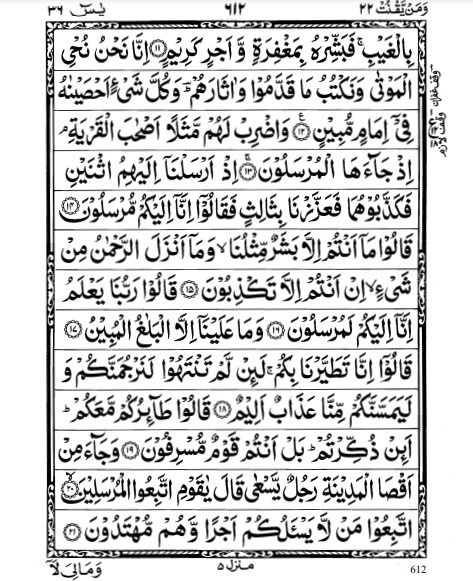 وَمَنۡ يَّقۡنُتۡ ٢٢ ٦١٢ يٰسٓ ٣٦
بِالۡغَيۡبِۚ فَبَشِّرۡهُ بِمَغۡفِرَةٍ وَّاَجۡرٍ كَرِيۡمٍ ﴿۱۱﴾ اِنَّا نَحۡنُ نُحۡىِ
الۡمَوۡتٰى وَنَكۡتُبُ مَا قَدَّمُوۡا وَاٰثَارَهُمۡؕ وَكُلَّ شَىۡءٍ اَحۡصَيۡنٰهُ
فِىۡۤ اِمَامٍ مُّبِيۡنٍ ﴿۱۲﴾ وَاضۡرِبۡ لَهُمۡ مَّثَلًا اَصۡحٰبَ الۡقَرۡيَةِۘ
اِذۡ جَآءَهَا الۡمُرۡسَلُوۡنَۚ ﴿۱۳﴾ اِذۡ اَرۡسَلۡنَاۤ اِلَيۡهِمُ اثۡنَيۡنِ
فَكَذَّبُوۡهُمَا فَعَزَّزۡنَا بِثَالِثٍ فَقَالُوۡۤا اِنَّاۤ اِلَيۡكُمۡ مُّرۡسَلُوۡنَ ﴿۱۴﴾
قَالُوۡا مَاۤ اَنۡتُمۡ اِلَّا بَشَرٌ مِّثۡلُنَاۙ وَمَاۤ اَنۡزَلَ الرَّحۡمٰنُ مِنۡ
شَىۡءٍۙ اِنۡ اَنۡتُمۡ اِلَّا تَكۡذِبُوۡنَ ﴿۱۵﴾ قَالُوۡا رَبُّنَا يَعۡلَمُ
اِنَّاۤ اِلَيۡكُمۡ لَمُرۡسَلُوۡنَ ﴿۱۶﴾ وَمَا عَلَيۡنَاۤ اِلَّا الۡبَلٰغُ الۡمُبِيۡنُ ﴿۱۷﴾
قَالُوۡۤا اِنَّا تَطَيَّرۡنَا بِكُمۡۚ لَئِنۡ لَّمۡ تَنۡتَهُوۡا لَنَرۡجُمَنَّكُمۡ وَ
لَيَمَسَّنَّكُمۡ مِّنَّا عَذَابٌ اَلِيۡمٌ ﴿۱۸﴾ قَالُوۡا طَآئِرُكُمۡ مَّعَكُمۡؕ
اَئِنۡ ذُكِّرۡتُمۡؕ بَلۡ اَنۡتُمۡ قَوۡمٌ مُّسۡرِفُوۡنَ ﴿۱۹﴾ وَجَآءَ مِنۡ
اَقۡصَا الۡمَدِيۡنَةِ رَجُلٌ يَّسۡعٰى قَالَ يٰقَوۡمِ اتَّبِعُوا الۡمُرۡسَلِيۡنَۙ ﴿۲۰﴾
اتَّبِعُوۡا مَنۡ لَّا يَسۡئَلُكُمۡ اَجۡرًا وَّهُمۡ مُّهۡتَدُوۡنَ ﴿۲۱﴾
وَمَا لِىَ لَاۤ منزل ٥ 612